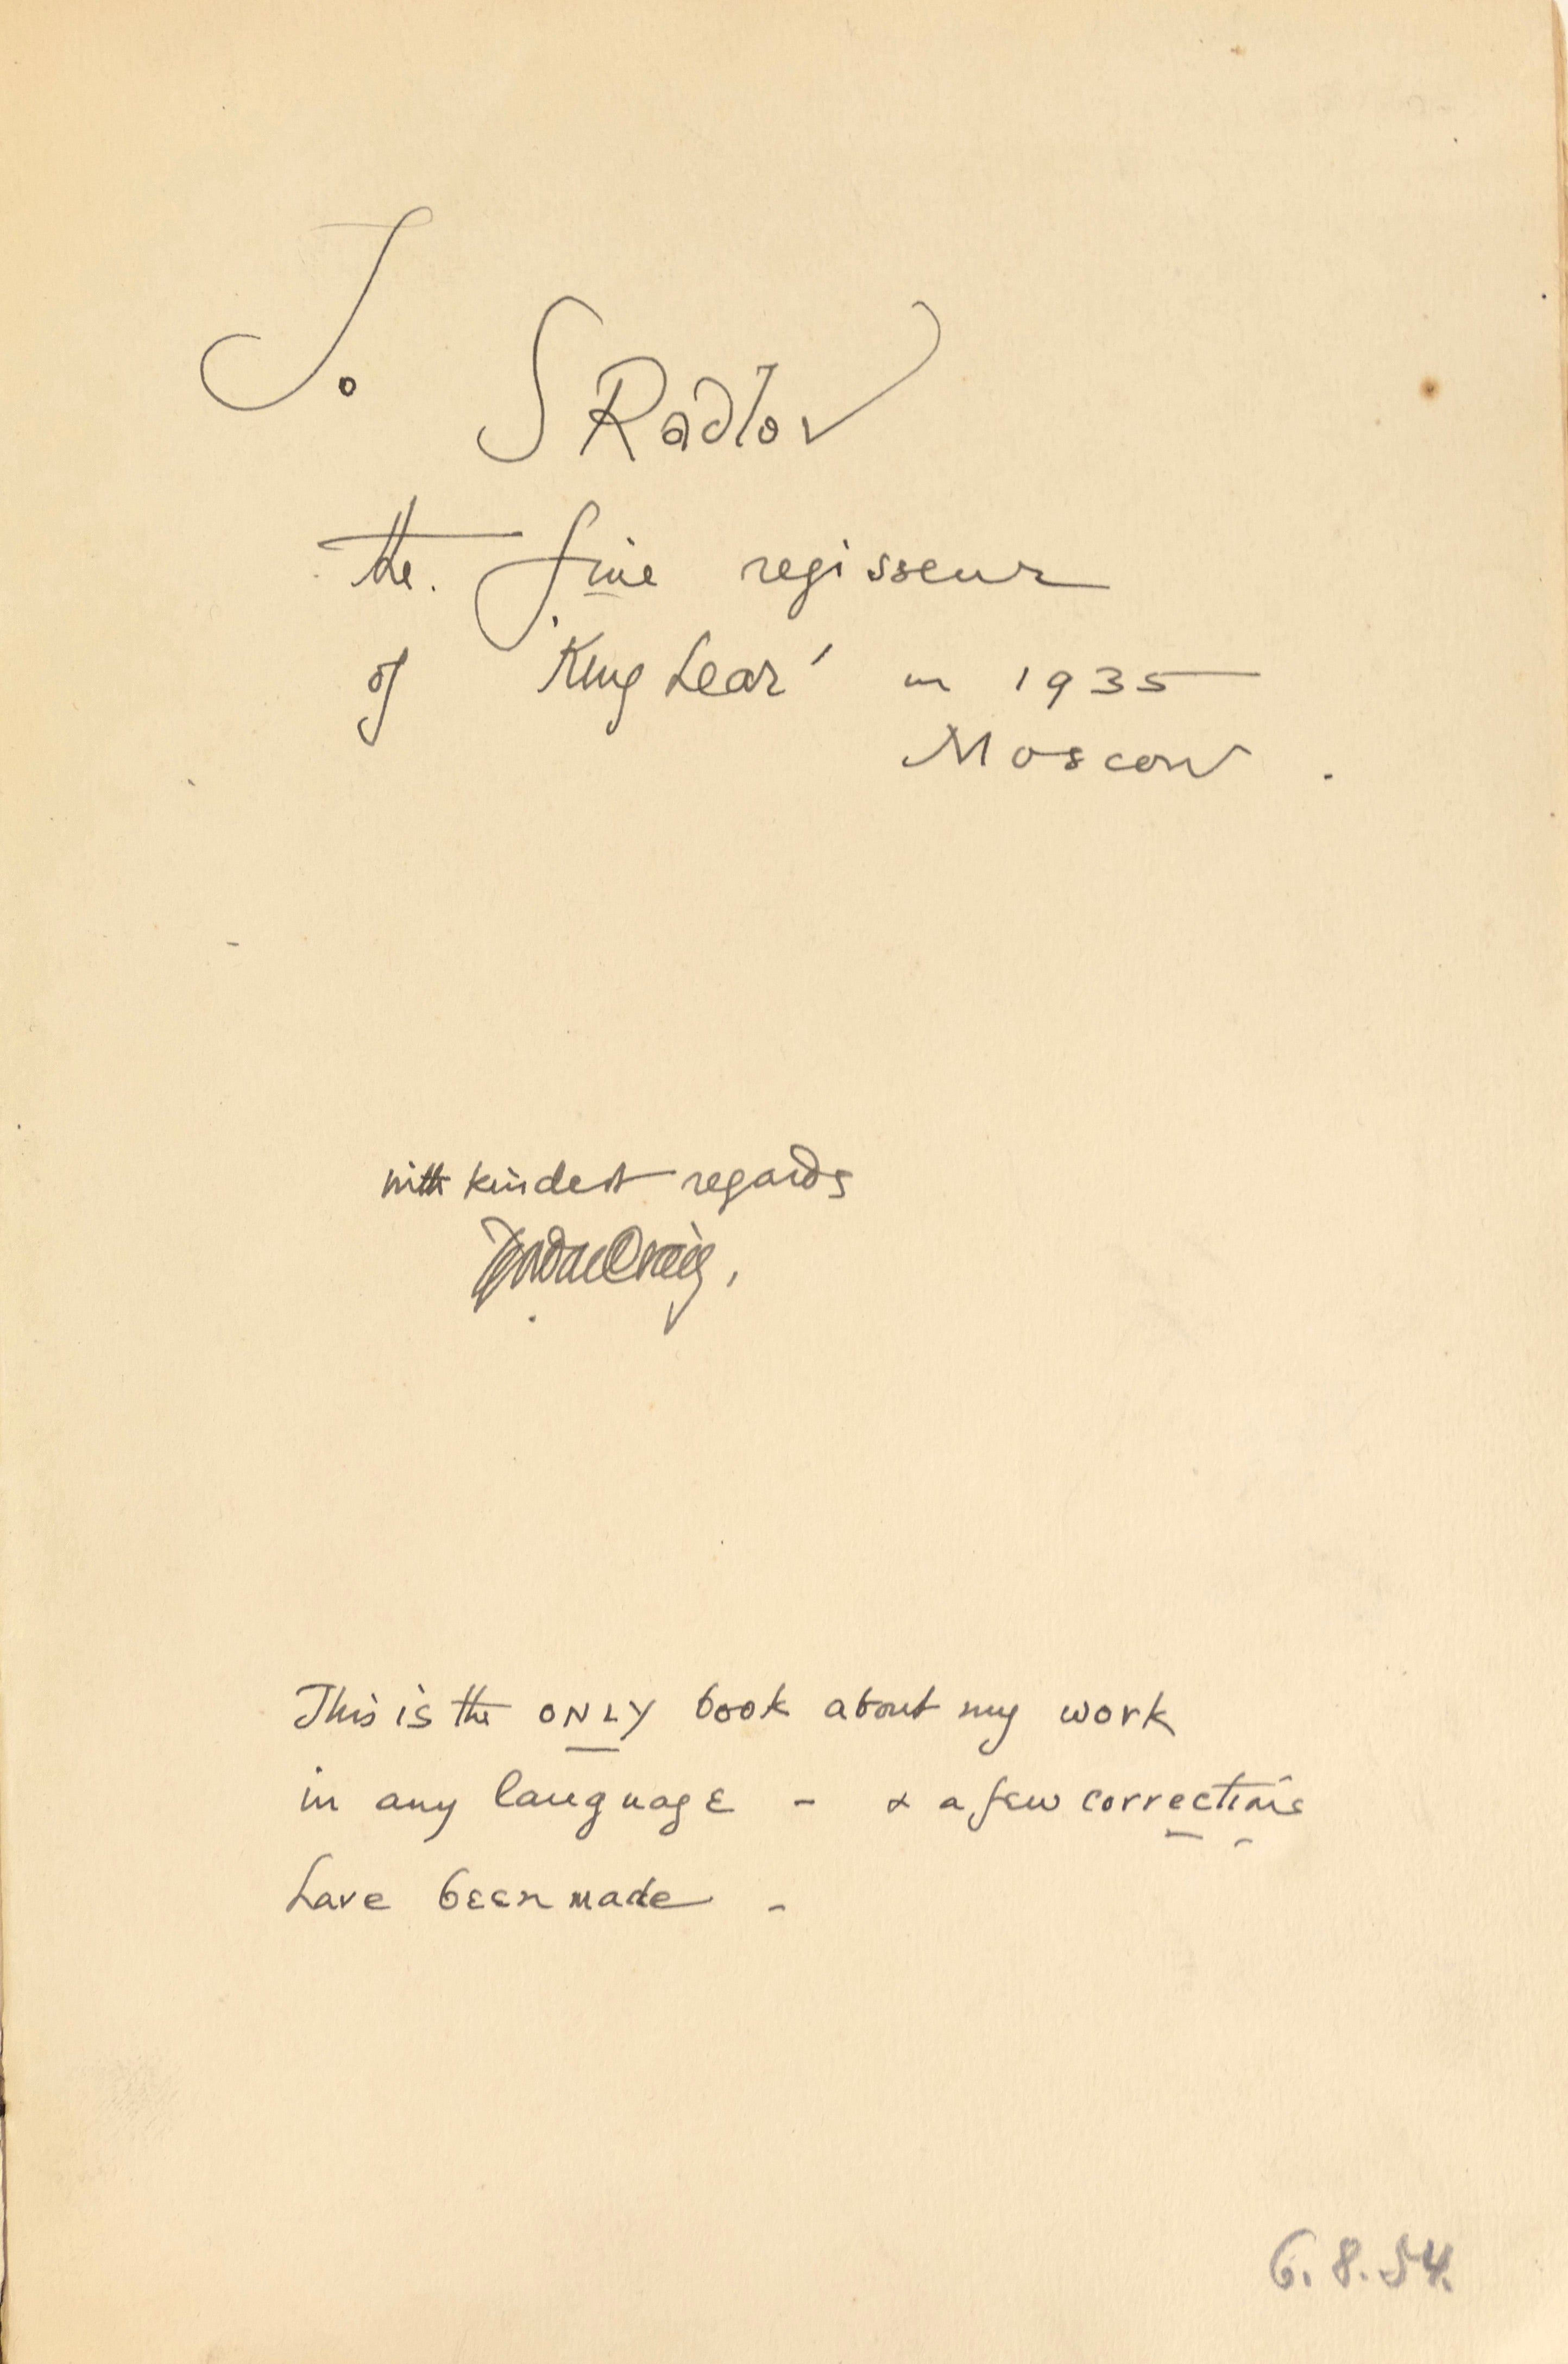 To
S Radlov
the fine regisseur
of 'King Lear' in 1935
Moscow.
with kindest regards
Gordon Craig,
This is the ONLY book about my work
in any language - & a few corrections
have been made -
6.8.54.